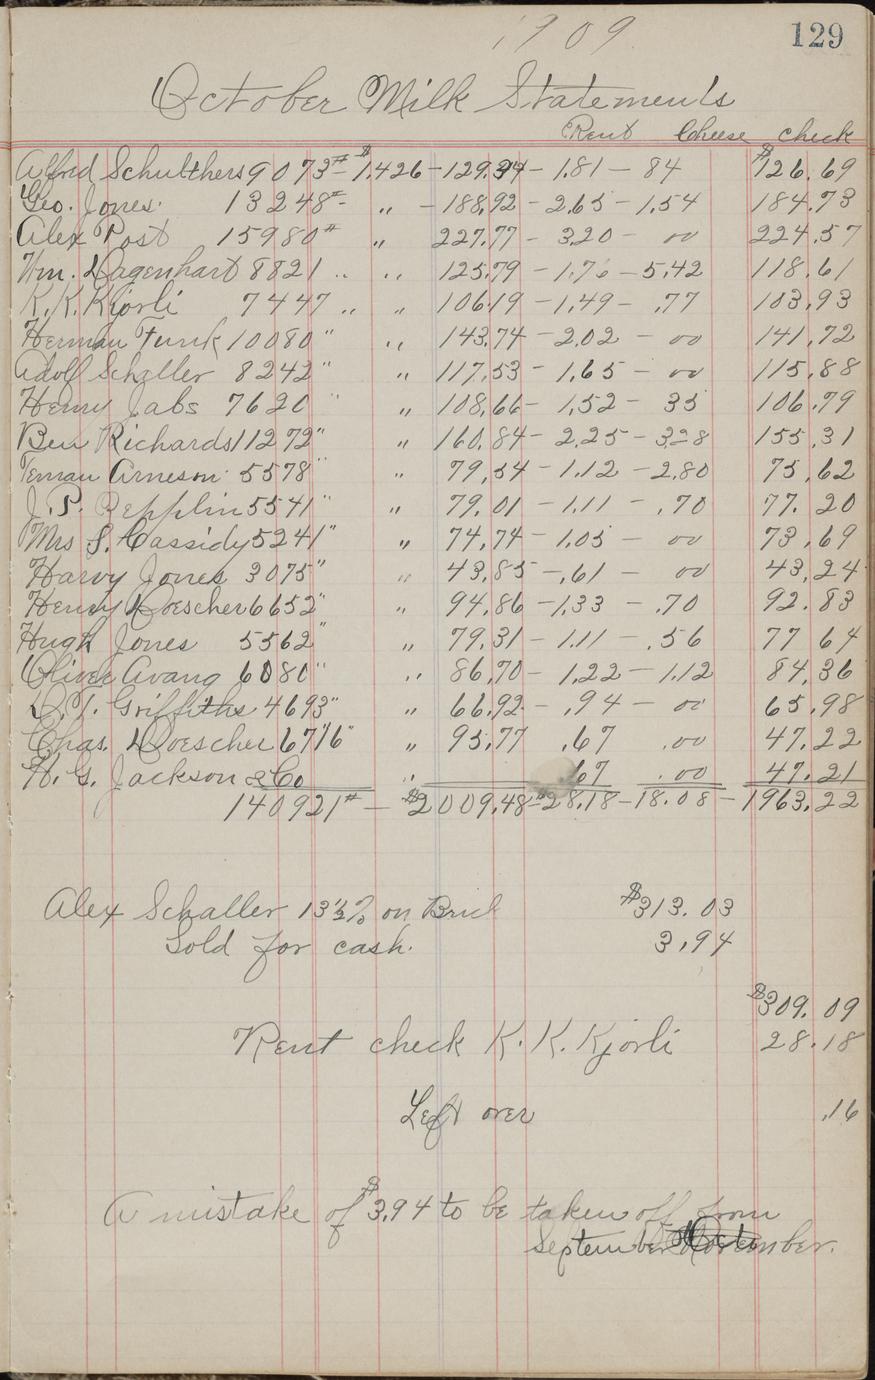 1909
129
October Milk Statements
Rent Cheese check
Alfred Schulthers 9073# - $1.426 - 129.34 - 1.81 - 84 $126.69
Geo. Jones. 13248# - „ - 188.92 - 2.65 - 1.54 184.73
Alex Post 15980# „ 227.77 - 3.20 - 00 224.57
Wm. Dagenhart 8821 „ „ 125.79 - 1.76 - 5.42 118.61
K. K. Kjorli 7447 „ „ 106.19 - 1.49 - .77 103.93
Herman Funk 10080 " „ 143.74 - 2.02 - 00 141.72
Adolf Schaller 8242 " „ 117.53 - 1.65 - 00 115.88
Henry Jabs 7620 " „ 108.66 - 1.52 - 35 106.79
Ben Richards 11272 " „ 160.84 - 2.25 - 3.28 155.31
Teman Arneson 5578 " „ 79.54 - 1.12 - 2.80 75.62
J. P. Zepplin 5541 " „ 79.01 - 1.11 - .70 77.20
Mrs S. Cassidy 5241 " „ 74.74 - 1.05 - 00 73.69
Harvy Jones 3075 " „ 43.85 - .61 - 00 43.24
Henry Doescher 6652 " „ 94.86 - 1.33 - .70 92.83
Hugh Jones 5562 " „ 79.31 - 1.11 - .56 77 64
Oliver Avang 6080 " „ 86.70 - 1.22 - 1.12 84.36
D. T. Griffiths 4693 " „ 66.92 - .94 - 00 65.98
Chas. Doescher 6716 " „ 95.77 .67 .00 47.22
H. G. Jackson & Co „ .67 .00 47.21
140921# - $2009.48 - $28.18 - 18.08 - 1963.22
Alex Schaller 13½% on Brick $313.03
Sold for cash. 3.94
$309.09
Rent check K. K. Kjorli 28.18
Left over .16
A mistake of $3.94 to be taken off from
September November.